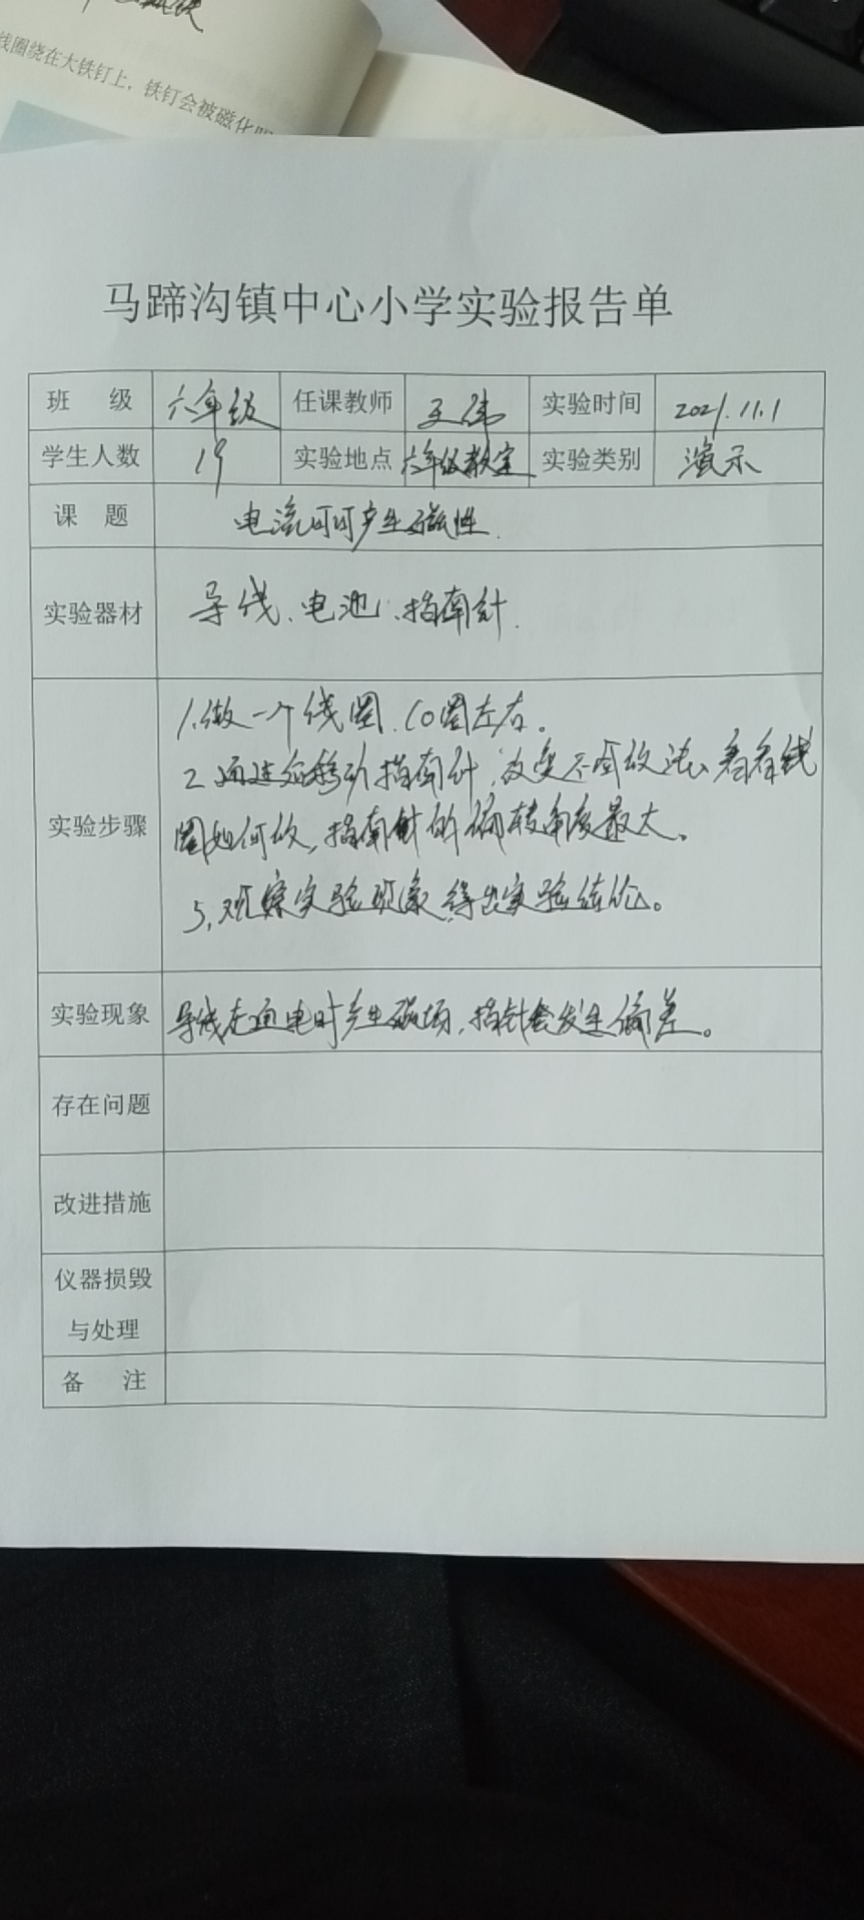 线圈绕在大铁钉上，铁钉会被磁化
马蹄沟镇中心小学实验报告单
班 级 六年级 任课教师 王伟 实验时间 2021.11.1
学生人数 19 实验地点 六年级教室 实验类别 演示
课 题 电流可可产生磁性.
实验器材 导线、电池、指南针.
1.做一个线圈.10圈左右。
2.通过移动指南针，改变不同放法、看看线
实验步骤 圈如何放，指南针的偏转角度最大。
3.观察实验现象，得出实验结论。
实验现象 导线在通电时产生磁场，指针会发生偏差。
存在问题
改进措施
仪器损毁
与处理
备 注